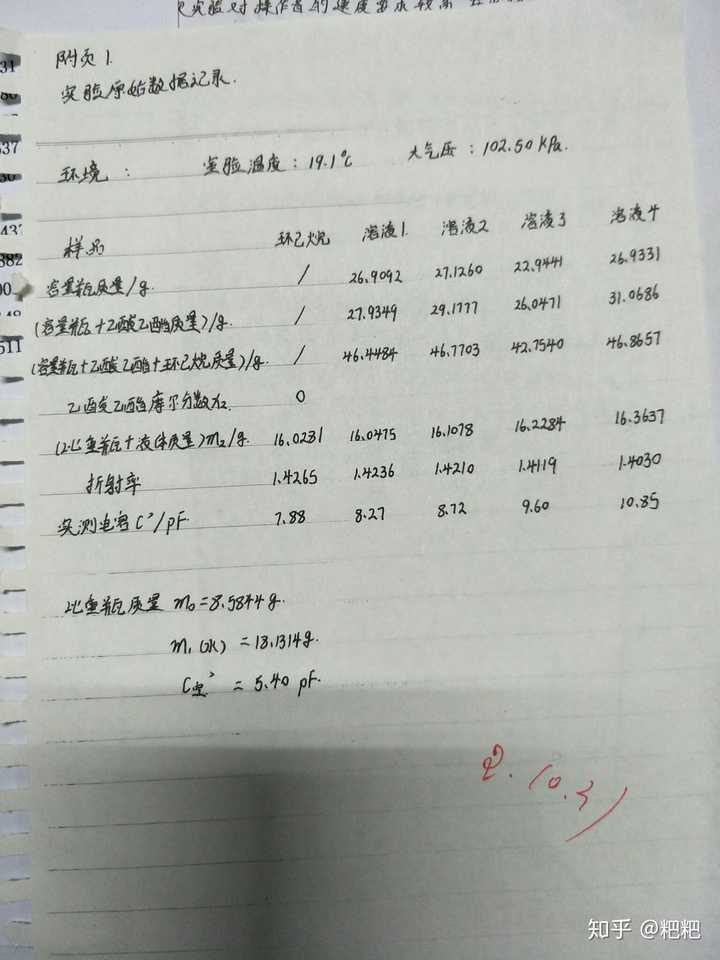 实验对操作者的速度要求较高
附页1.
实验原始数据记录.
环境： 实验温度：19.1℃ 大气压：102.50 kPa.
样品 环己烷 溶液1. 溶液2 溶液3 溶液4
容量瓶质量/g. / 26.9092 27.1260 22.9441 26.9331
(容量瓶+乙酸乙酯质量)/g. / 27.9349 29.1777 26.0471 31.0686
(容量瓶+乙酸乙酯+环己烷质量)/g. / 46.4484 46.7703 42.7540 46.8657
乙酸乙酯摩尔分数x₂. 0
(比重瓶+液体质量)m₂/g. 16.0231 16.0475 16.1078 16.2284 16.3637
折射率 1.4265 1.4236 1.4210 1.4119 1.4030
实测电容C'/pF. 7.88 8.27 8.72 9.60 10.85
比重瓶质量 m₀=8.5844g.
m₁(水) =18.1314g.
C空' = 5.40 pF.
知乎 @粑粑